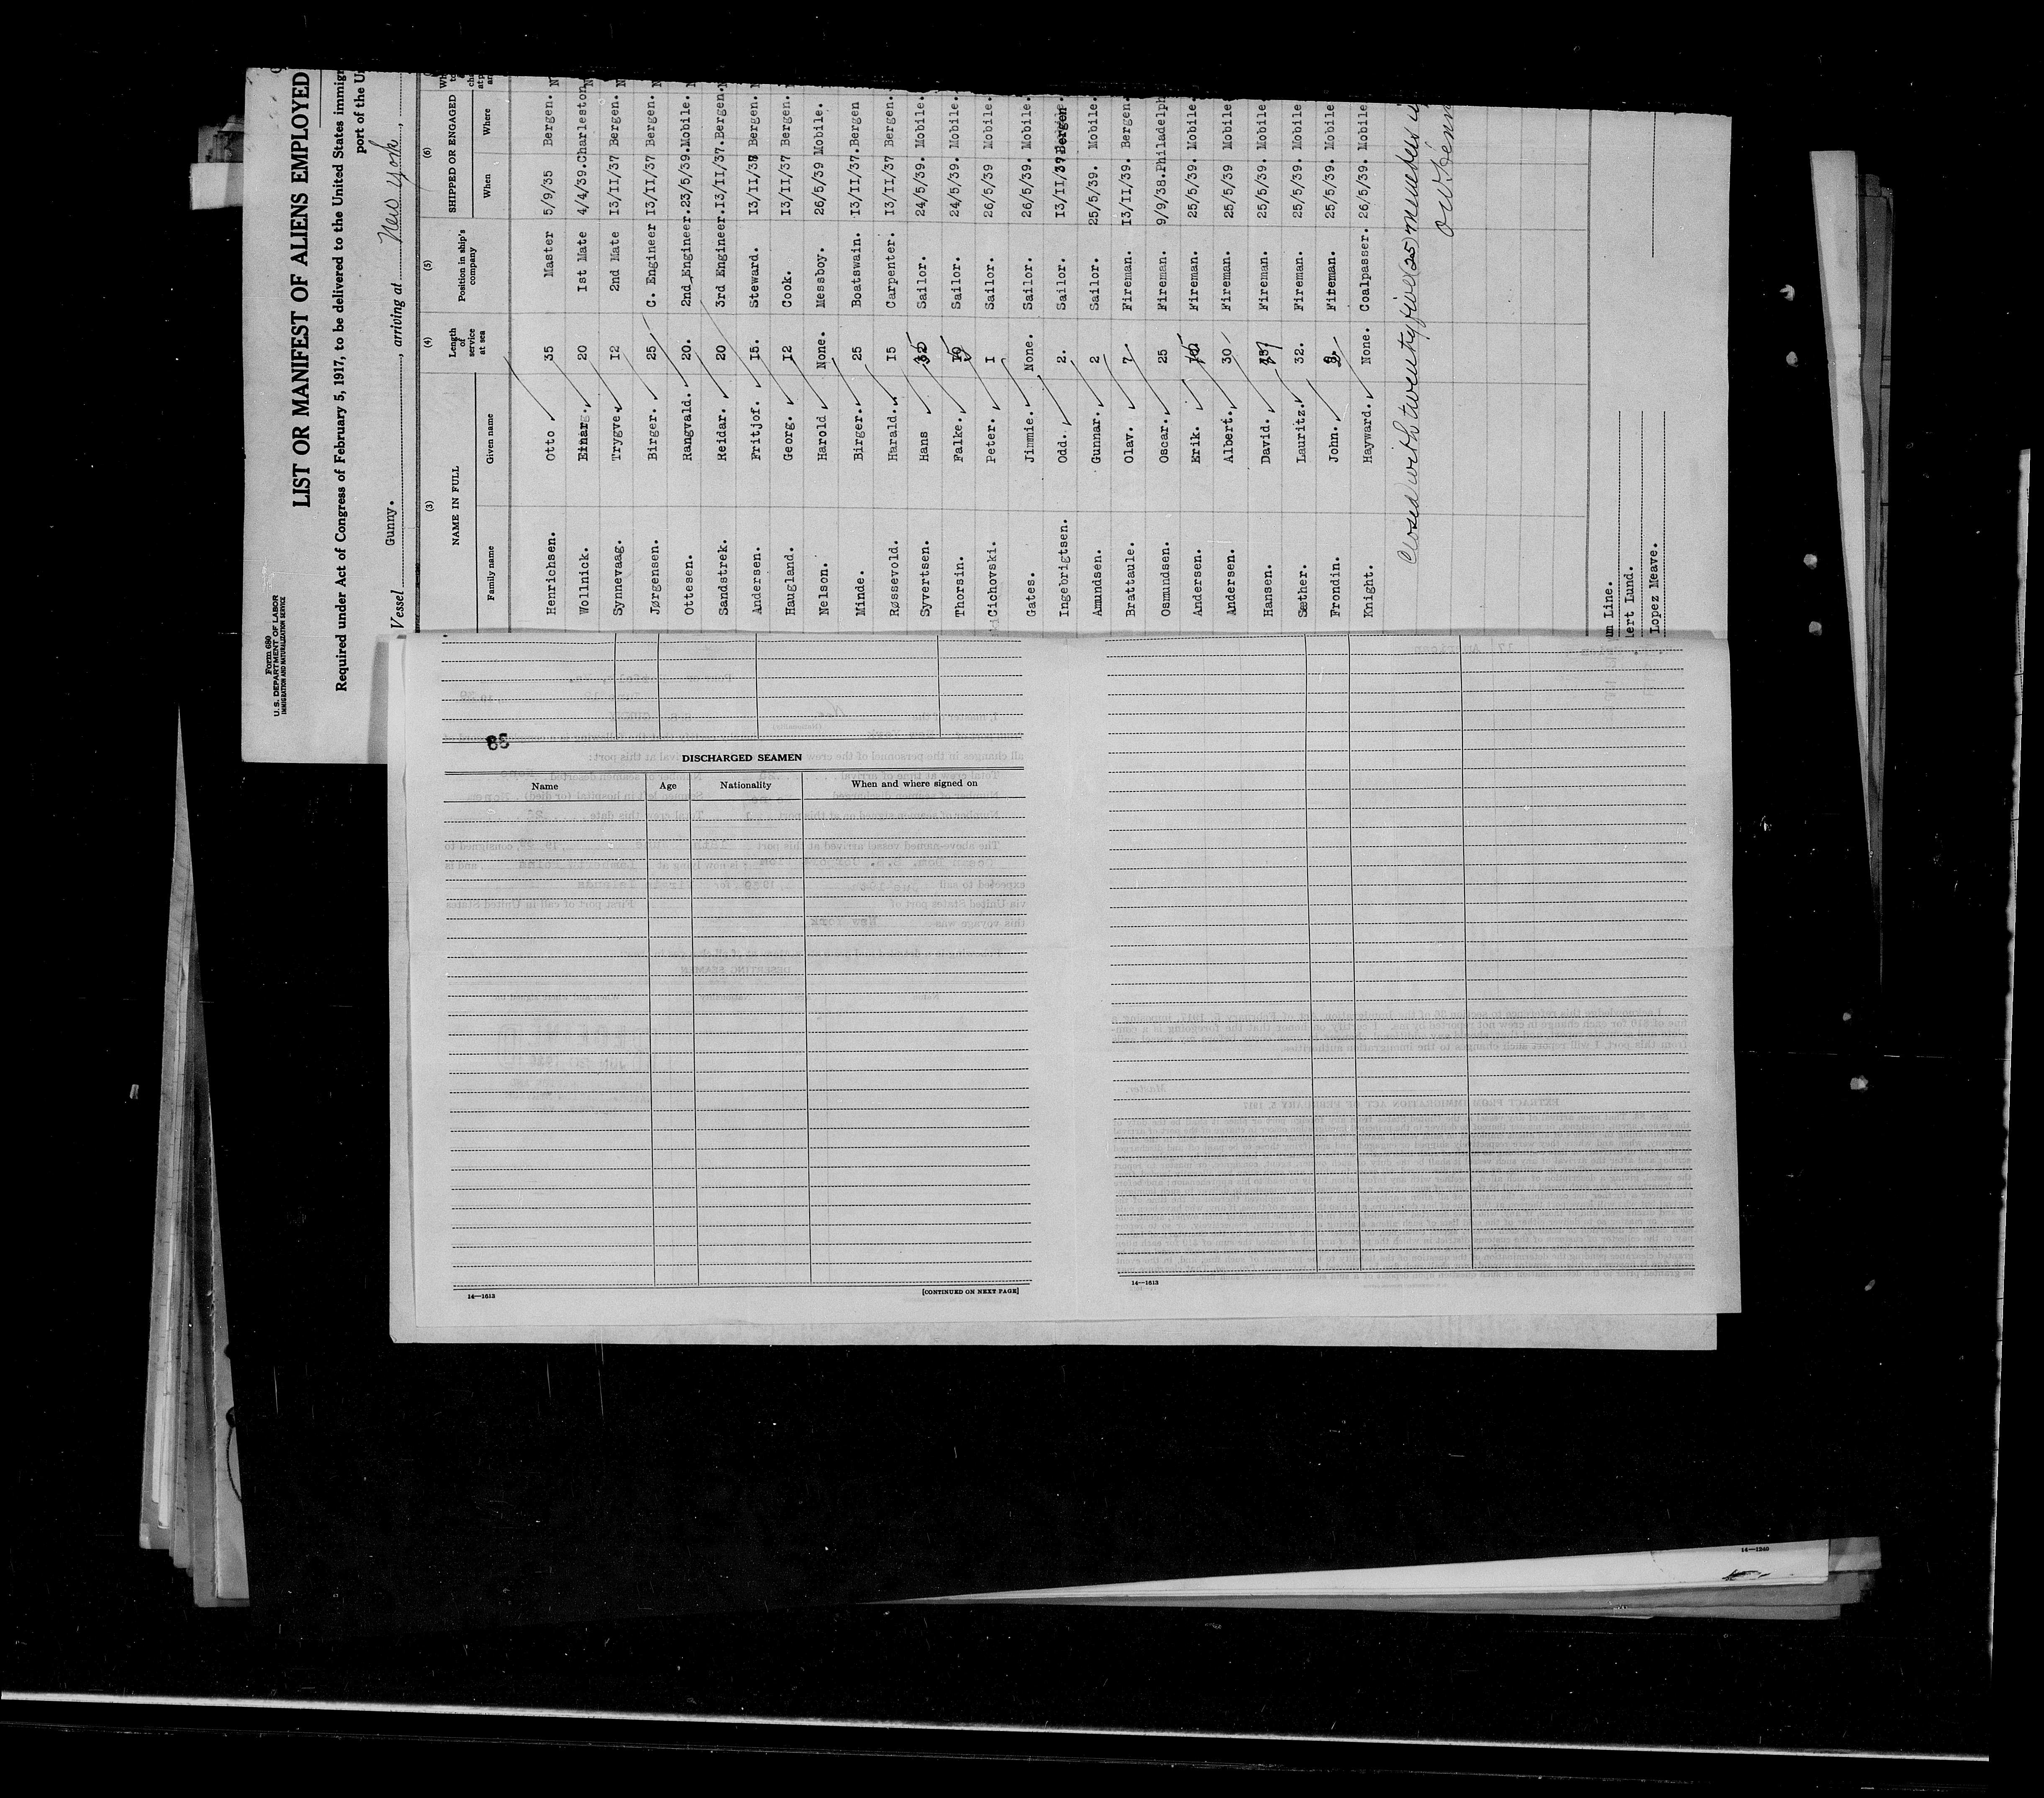 Form 680
U. S. DEPARTMENT OF LABOR
IMMIGRATION AND NATURALIZATION SERVICE
LIST OR MANIFEST OF ALIENS EMPLOYED
Required under Act of Congress of February 5, 1917, to be delivered to the United States immigr
port of the U
Vessel Gunny. , arriving at New York ,
(3) (4) (5) (6)
NAME IN FULL Length of service at sea Position in ship's company SHIPPED OR ENGAGED
Family name Given name When Where
Henrichsen. Otto 35 Master 5/9/35 Bergen.
Wollnick. Einar. 20 1st Mate 4/4/39. Charleston
Synnevaag. Trygve. I2 2nd Mate I3/II/37 Bergen.
Jørgensen. Birger. 25 C. Engineer I3/II/37 Bergen.
Ottesen. Rangvald. 20. 2nd Engineer. 23/5/39. Mobile.
Sandstrek. Reidar. 20 3rd Engineer. I3/II/37. Bergen.
Andersen. Fritjof. I5. Steward. I3/II/37 Bergen.
Haugland. Georg. I2 Cook. I3/II/37 Bergen.
Nelson. Harold None. Messboy. 26/5/39 Mobile.
Minde. Birger. 25 Boatswain. I3/II/37. Bergen
Røssevold. Harald. I5 Carpenter. I3/II/37 Bergen.
Syvertsen. Hans Sailor. 24/5/39. Mobile.
Thorsin. Falke. Sailor. 24/5/39. Mobile.
Cichovski. Peter. I Sailor. 26/5/39 Mobile.
Gates. Jimmie. None. Sailor. 26/5/39. Mobile.
Ingebrigtsen. Odd. 2. Sailor. I3/II/37 Bergen.
Amundsen. Gunnar. 2 Sailor. 25/5/39. Mobile.
Brattaule. Olav. 7 Fireman. I3/II/39. Bergen.
Osmundsen. Oscar. 25 Fireman. 9/9/38. Philadelph
Andersen. Erik. Fireman. 25/5/39. Mobile.
Andersen. Albert. 30 Fireman. 25/5/39 Mobile
Hansen. David. Fireman. 25/5/39. Mobile.
Sæther. Lauritz. 32. Fireman. 25/5/39. Mobile
Frondin. John. Fireman. 25/5/39. Mobile
Knight. Hayward. None. Coalpasser. 26/5/39. Mobile
Closed with twenty five (25) members
um Line.
ert Lund.
Lopez Meave.
88
DISCHARGED SEAMEN
Name Age Nationality When and where signed on
14—1613
[CONTINUED ON NEXT PAGE]
14—1613
14—1249